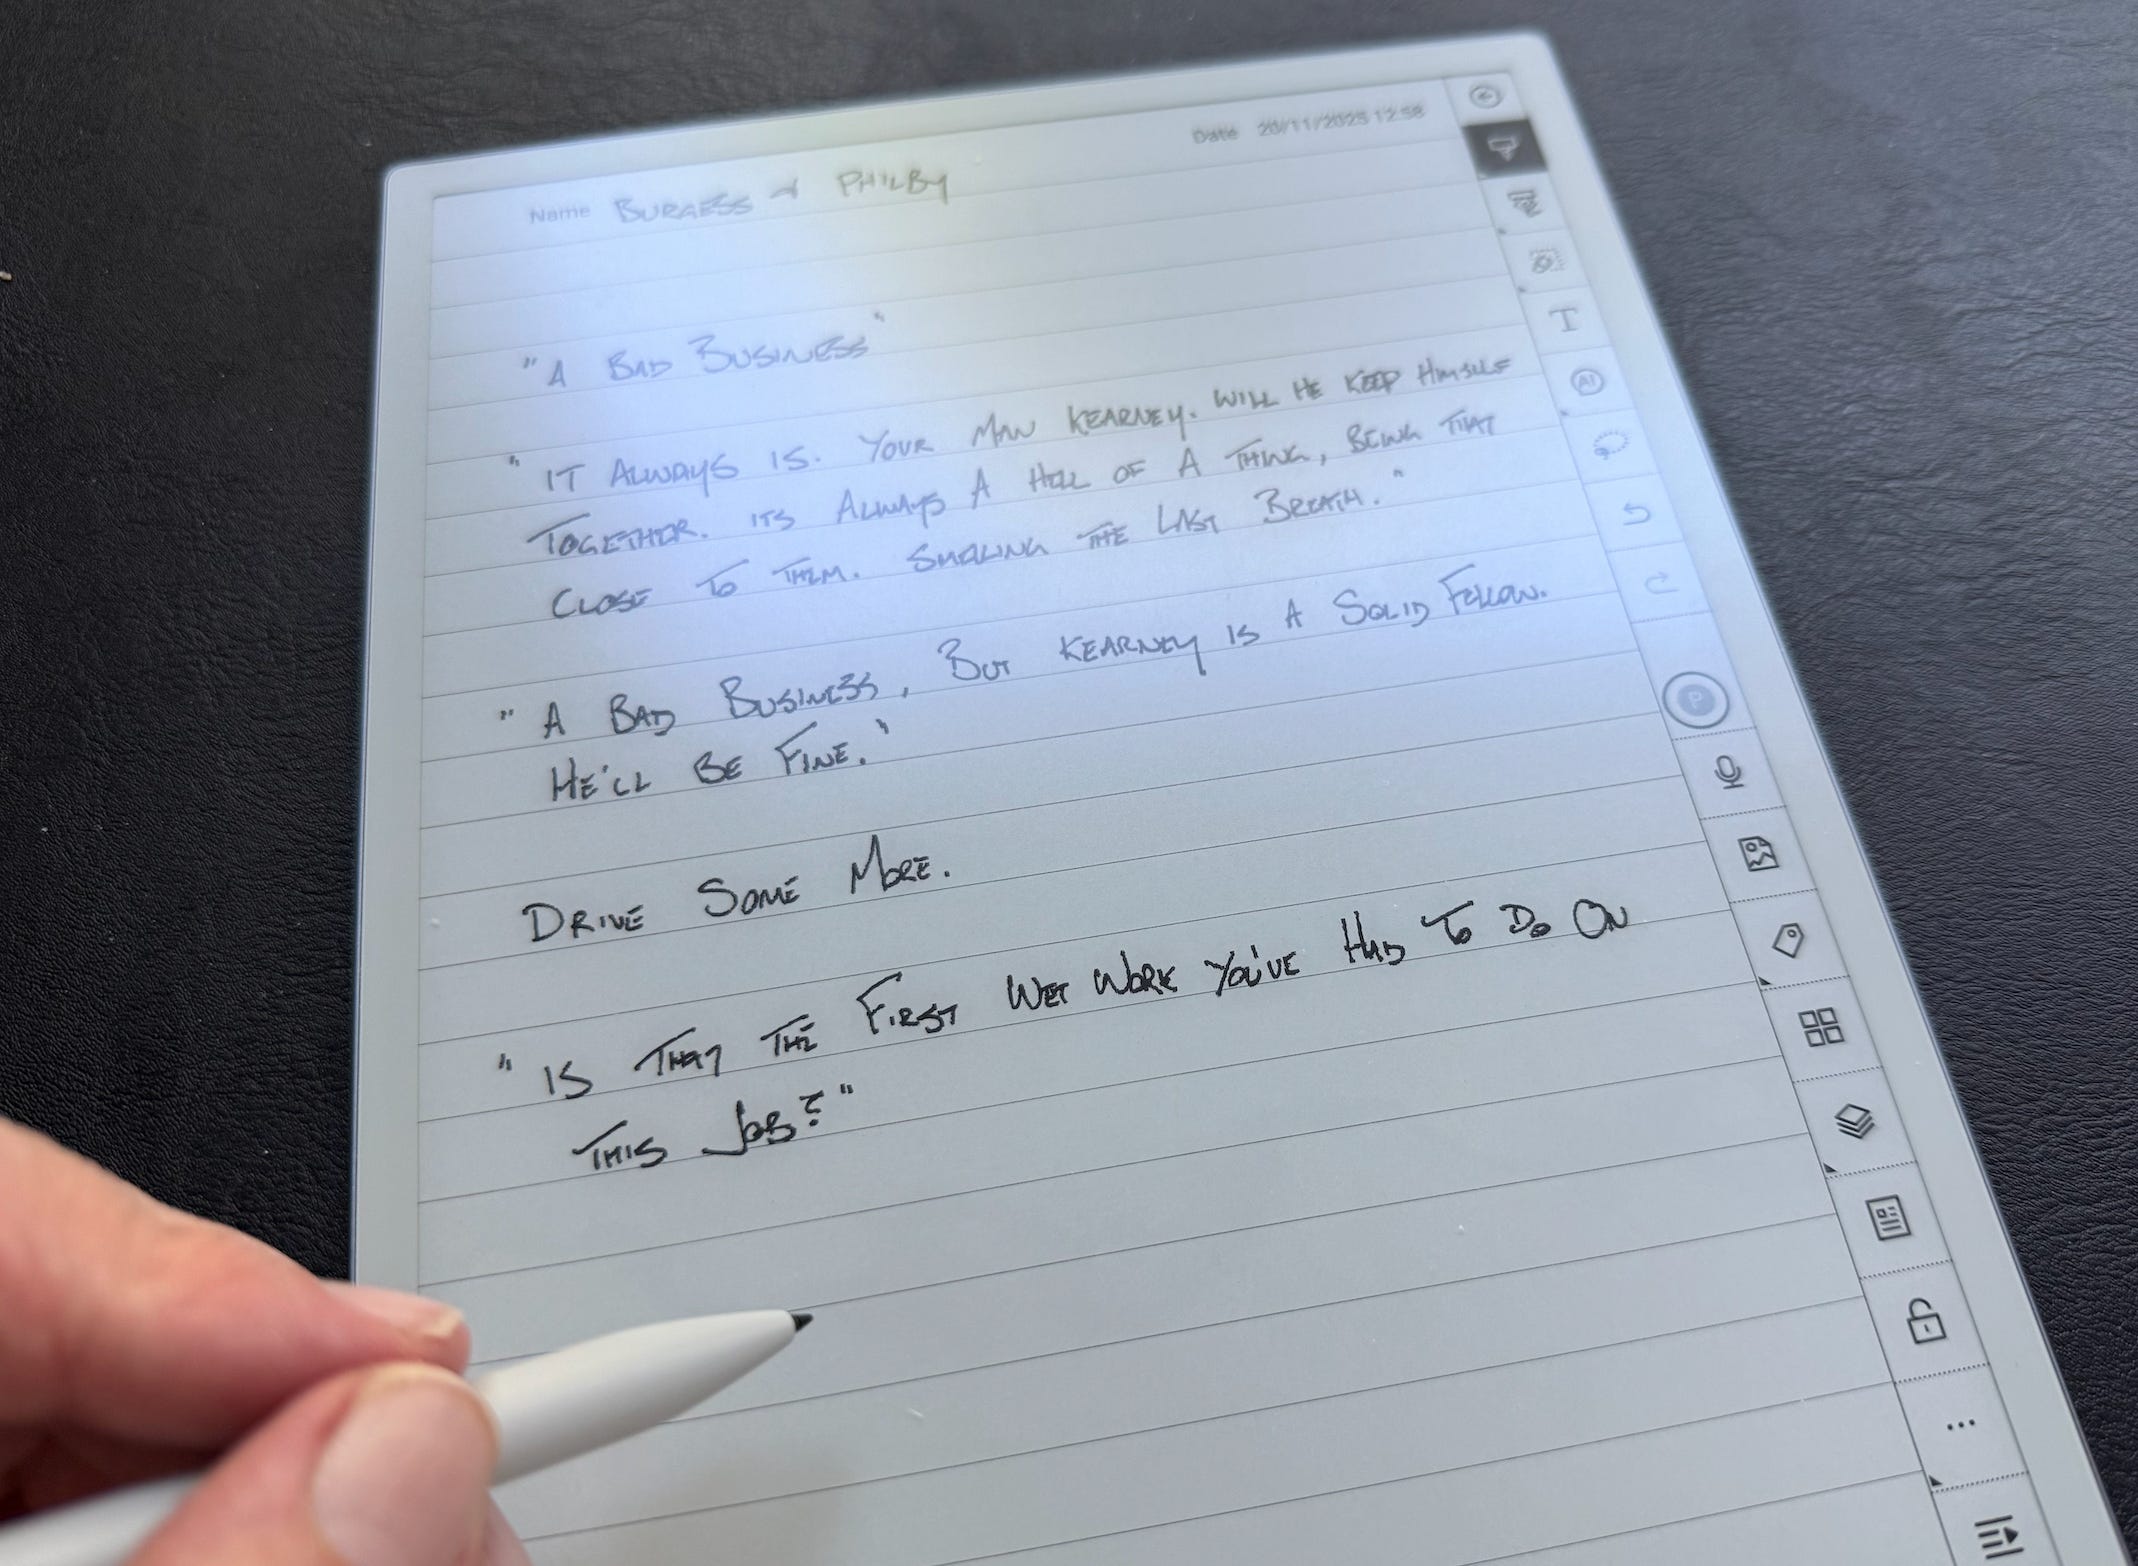 Name BURGESS & PHILBY
Date 20/11/2025 12:58
"A BAD BUSINESS"
"IT ALWAYS IS. YOUR MAN KEARNEY. WILL HE KEEP HIMSELF
TOGETHER. ITS ALWAYS A HELL OF A THING, BEING THAT
CLOSE TO THEM. SMELLING THE LAST BREATH."
"A BAD BUSINESS, BUT KEARNEY IS A SOLID FELLOW.
HE'LL BE FINE."
DRIVE SOME MORE.
"IS THAT THE FIRST WET WORK YOU'VE HAD TO DO ON
THIS JOB?"
T
AI
P